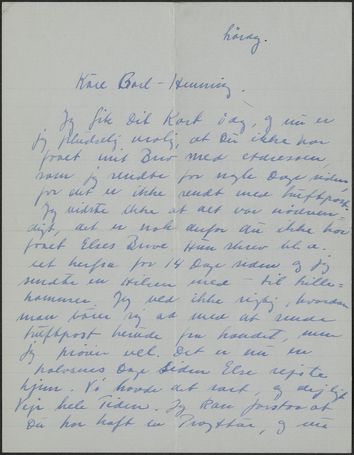 Lörag.
Kære Carl-Henning.
Jeg fik Dit Kort i dag, og nu er
jeg pludselig urolig, at Du ikke har
faaet mit Brev med adressen,
som jeg sendte for nogle Dage siden,
for det er ikke sendt med Luftpost.
Jeg vidste ikke at det var nødven-
digt, det er nok derfor du ikke har
faaet Elses Breve. Hun skrev bl.a.
eet herfra for 14 Dage siden og jeg
sendte en Hilsen med - til lille-
hammer. Jeg ved ikke rigtig, hvordan
man bærer sig ad med at sende
Luftpost herude fra Landet, men
jeg prøver vel. Det er nu en
halvsnes Dage siden Else rejste
hjem. Vi havde det rart og dejligt
Vejr hele Tiden. Jeg kan forstaa at
Du har haft en Prøvetur, og nu